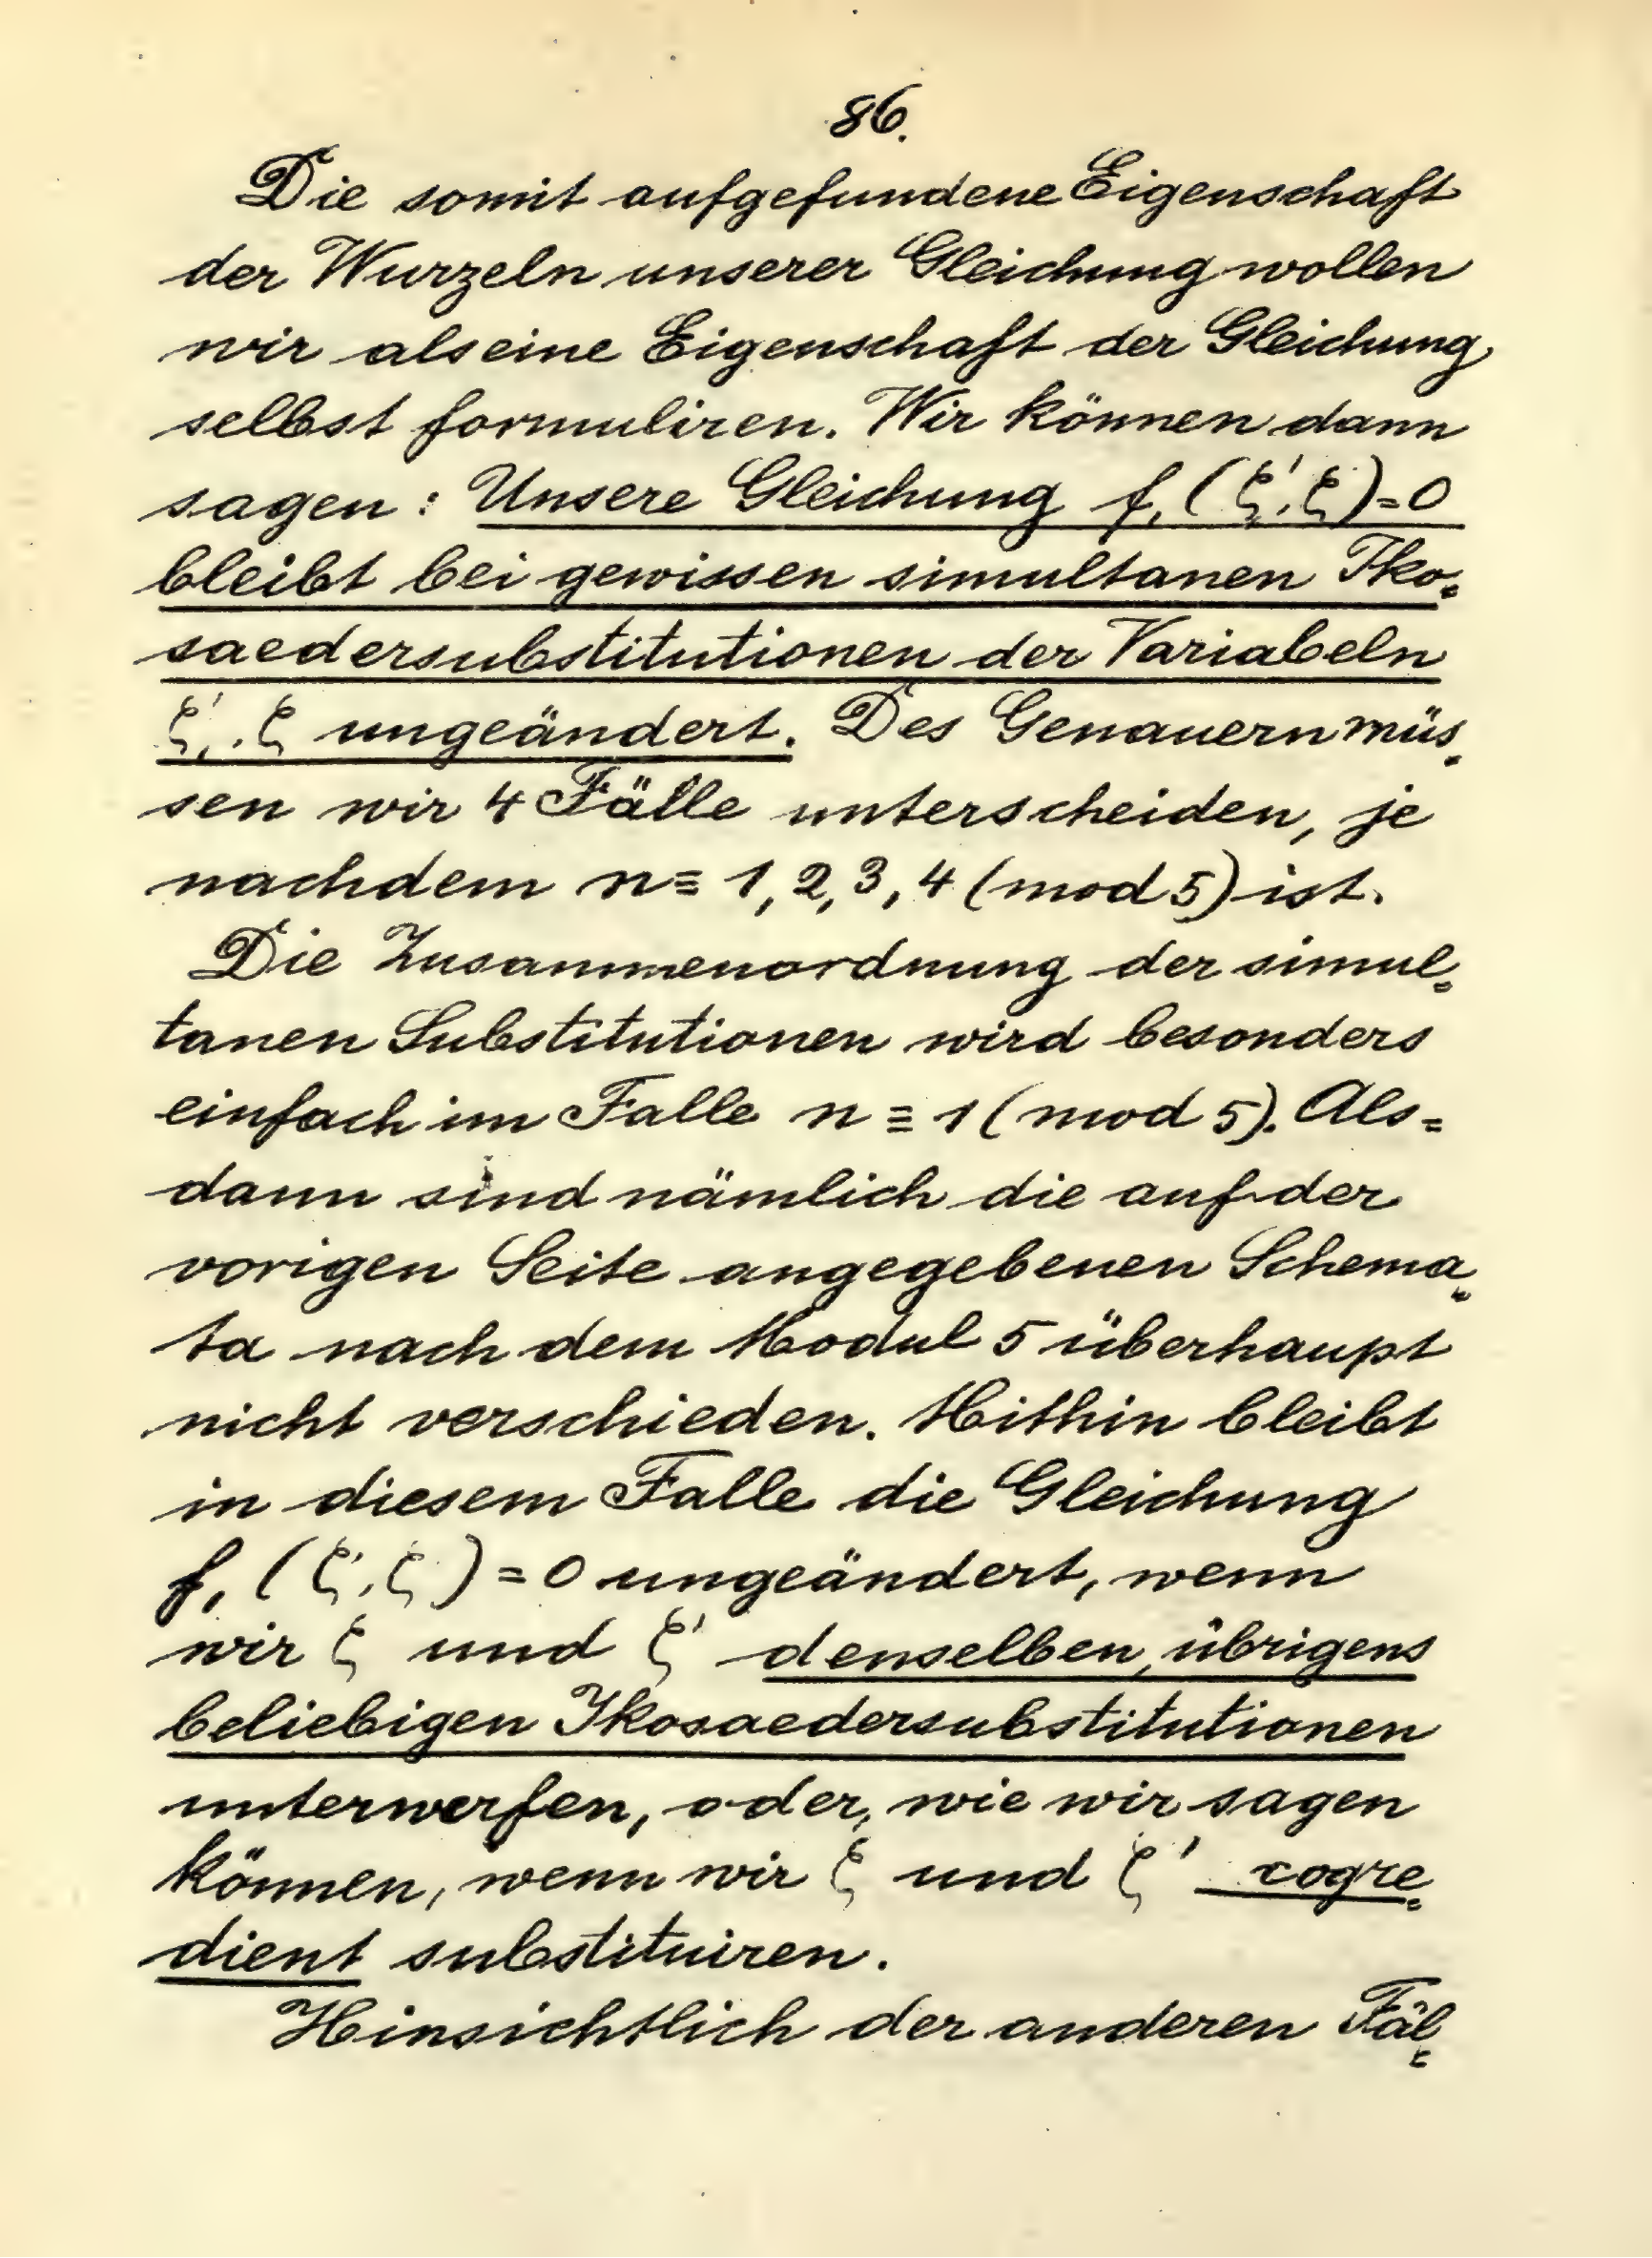 86.
Die somit aufgefundene Eigenschaft
der Wurzeln unserer Gleichung wollen
wir als eine Eigenschaft der Gleichung
selbst formuliren. Wir können dann
sagen: Unsere Gleichung f₁ (ζ′, ζ) = 0
bleibt bei gewissen simultanen Iko=
saedersubstitutionen der Variabeln
ζ′, ζ ungeändert. Des Genauern müs=
sen wir 4 Fälle unterscheiden, je
nachdem n ≡ 1, 2, 3, 4 (mod 5) ist.
Die Zusammenordnung der simul=
tanen Substitutionen wird besonders
einfach im Falle n ≡ 1 (mod 5). Als=
dann sind nämlich die auf der
vorigen Seite angegebenen Schema=
ta nach dem Modul 5 überhaupt
nicht verschieden. Mithin bleibt
in diesem Falle die Gleichung
f₁ (ζ′, ζ) = 0 ungeändert, wenn
wir ζ und ζ′ denselben, übrigens
beliebigen Ikosaedersubstitutionen
unterwerfen, oder, wie wir sagen
können, wenn wir ζ und ζ′ cogre=
dient substituiren.
Hinsichtlich der anderen Fäl=